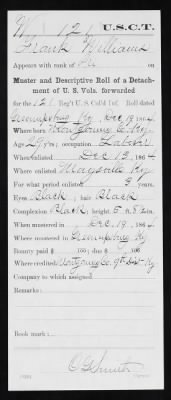 W 121 U.S.C.T.
Frank Williams
Appears with rank of Pvt on
Muster and Descriptive Roll of a Detach-
ment of U. S. Vols. forwarded
for the 121 Reg't U. S. Col'd Inf. Roll dated
Greenupsburg Ky, Dec 19, 1864
Where born Montgomery Co. Ky.
Age 29 y'rs; occupation Laborer
When enlisted Dec 13, 1864
Where enlisted Maysville Ky
For what period enlisted 3 years.
Eyes Black; hair Black
Complexion Black; height 5 ft. 8 in.
When mustered in Dec. 19, 1864
Where mustered in Greenupsburg Ky
Bounty paid $ 100; due $ 100
Where credited Montgomery Co. 9th Dist. Ky
Company to which assigned
Remarks:
Book mark:
Copyist.